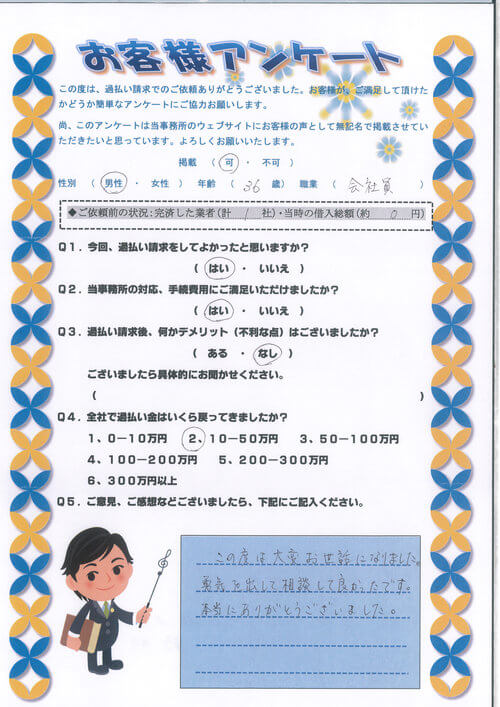 お客様アンケート
この度は、過払い請求でのご依頼ありがとうございました。お客様が、ご満足して頂けた
かどうか簡単なアンケートにご協力お願いします。
尚、このアンケートは当事務所のウェブサイトにお客様の声として無記名で掲載させてい
ただきたいと思っています。よろしくお願いいたします。
掲載 ( 可 ・ 不可 )
性別 ( 男性 ・ 女性 ) 年齢 ( 36 歳) 職業 ( 会社員 )
◆ご依頼前の状況:完済した業者(計 1 社)・当時の借入総額(約 0 円)
Q1.今回、過払い請求をしてよかったと思いますか?
( はい ・ いいえ )
Q2.当事務所の対応、手続費用にご満足いただけましたか?
( はい ・ いいえ )
Q3.過払い請求後、何かデメリット(不利な点)はございましたか?
( ある ・ なし )
ございましたら具体的にお聞かせください。
( )
Q4.全社で過払い金はいくら戻ってきましたか?
1、0-10万円 2、10-50万円 3、50-100万円
4、100-200万円 5、200-300万円
6、300万円以上
Q5.ご意見、ご感想などございましたら、下記にご記入ください。
この度は大変お世話になりました。
勇気を出して相談して良かったです。
本当にありがとうございました。